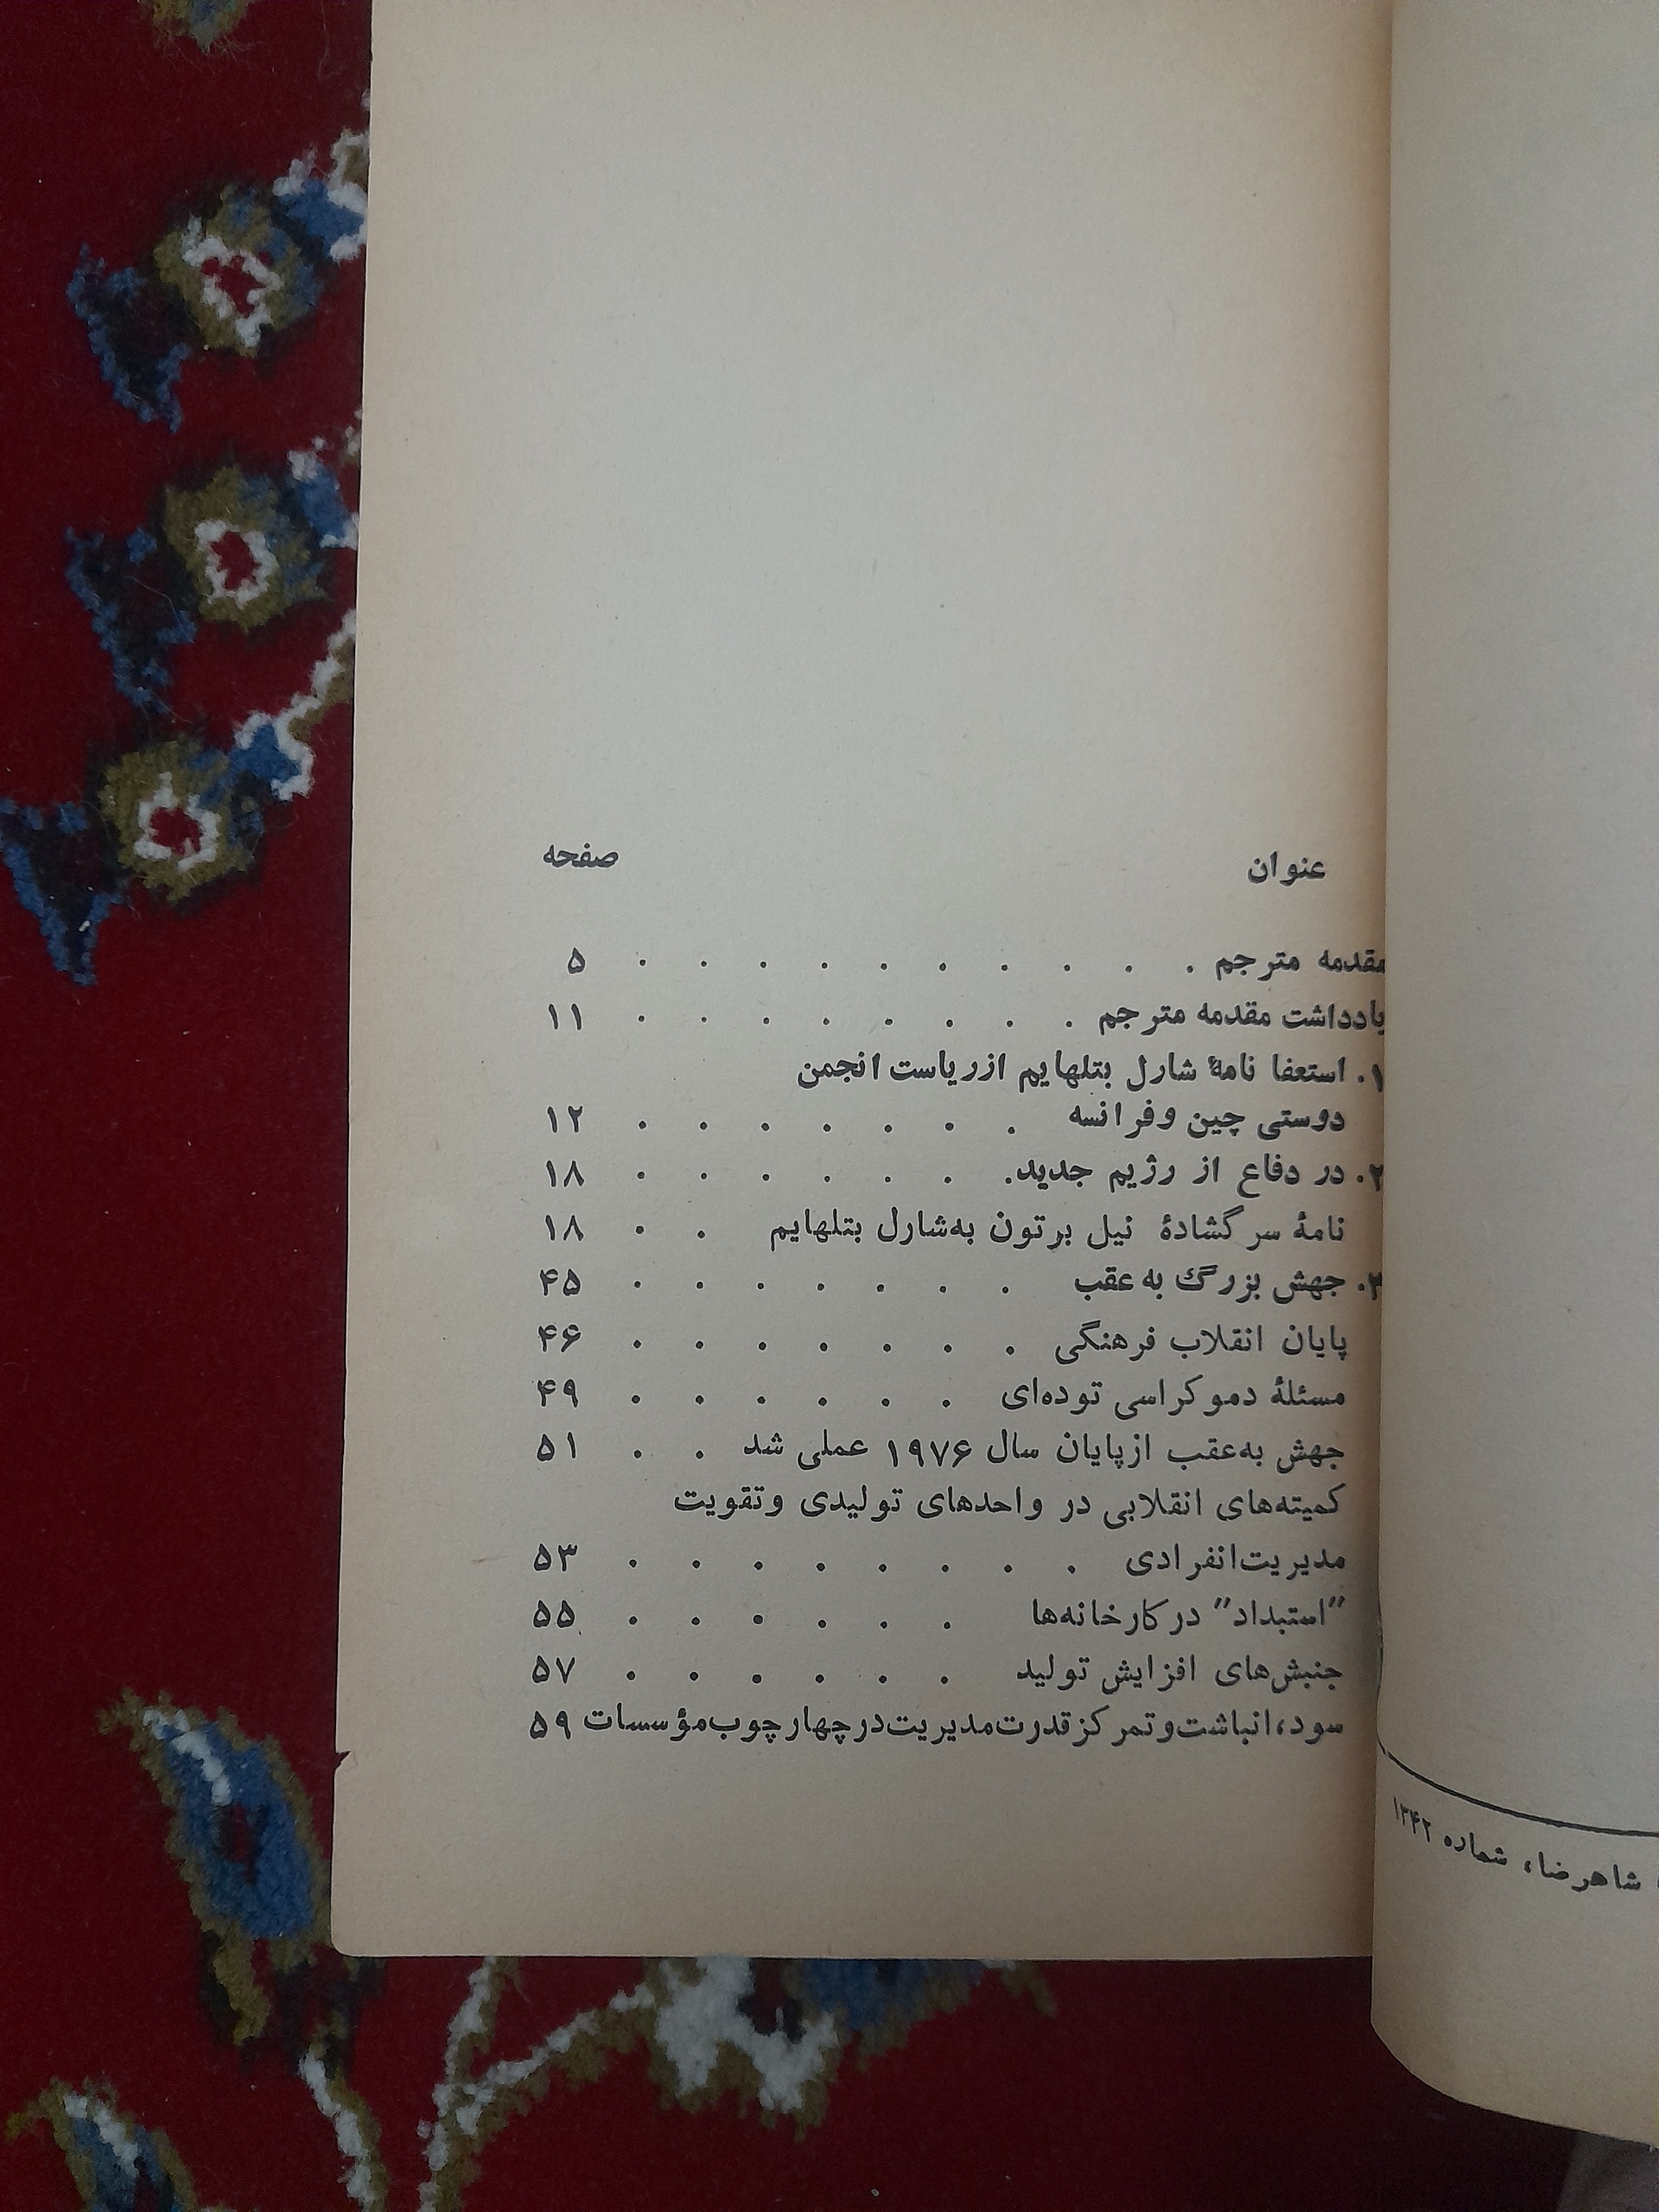 عنوان صفحه
مقدمه مترجم . . . . . . . . . . ۵
یادداشت مقدمه مترجم . . . . . . . . ۱۱
۱. استعفا نامهٔ شارل بتلهایم از ریاست انجمن
دوستی چین و فرانسه . . . . . . . ۱۲
۲. در دفاع از رژیم جدید. . . . . . . ۱۸
نامهٔ سرگشادهٔ نیل برتون به شارل بتلهایم . . ۱۸
۳. جهش بزرگ به عقب . . . . . . . ۴۵
پایان انقلاب فرهنگی . . . . . . . ۴۶
مسئلهٔ دموکراسی توده‌ای . . . . . . ۴۹
جهش به‌عقب از پایان سال ۱۹۷۶ عملی شد . . ۵۱
کمیته‌های انقلابی در واحدهای تولیدی و تقویت
مدیریت انفرادی . . . . . . . . ۵۳
"استبداد" در کارخانه‌ها . . . . . . ۵۵
جنبش‌های افزایش تولید . . . . . . ۵۷
سود، انباشت و تمرکز قدرت مدیریت در چهارچوب مؤسسات ۵۹
شاهرضا، شماره ۱۳۴۲